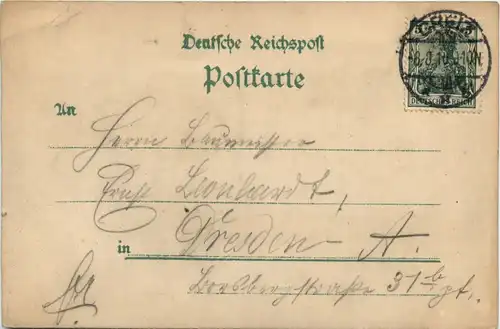 Deutsche Reichspost
Postkarte
An
Herrn Baumeister
Ernst Leonhardt,
in Dresden-A.
Borsbergstraße 31 b pt.
GREIZ
DEUTSCHES REICH